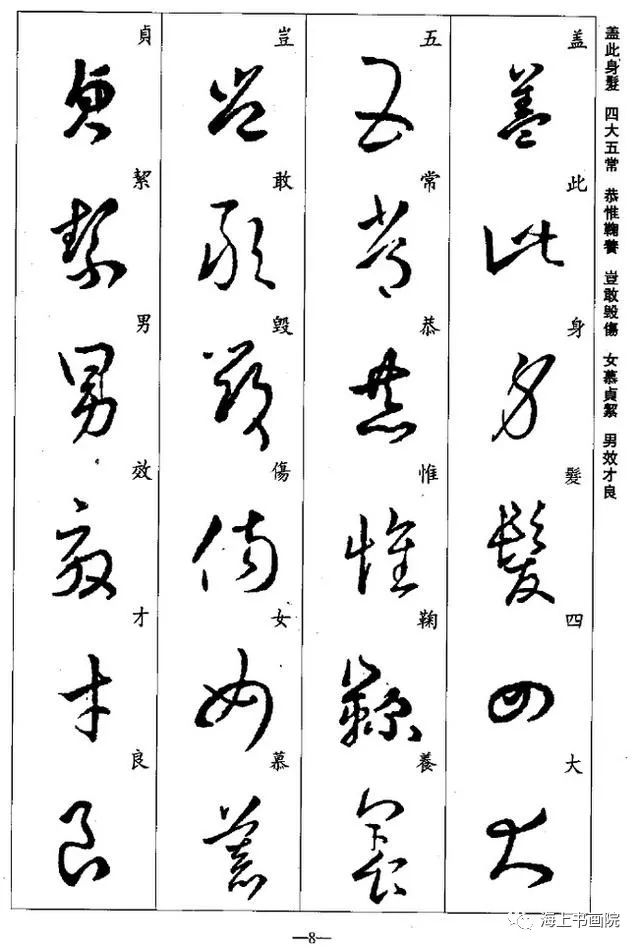 盖此身髮 四大五常 恭惟鞠養 豈敢毀傷 女慕貞絜 男效才良
盖此身髮四大
五常恭惟鞠養
豈敢毀傷女慕
貞絜男效才良
—8—
海上书画院